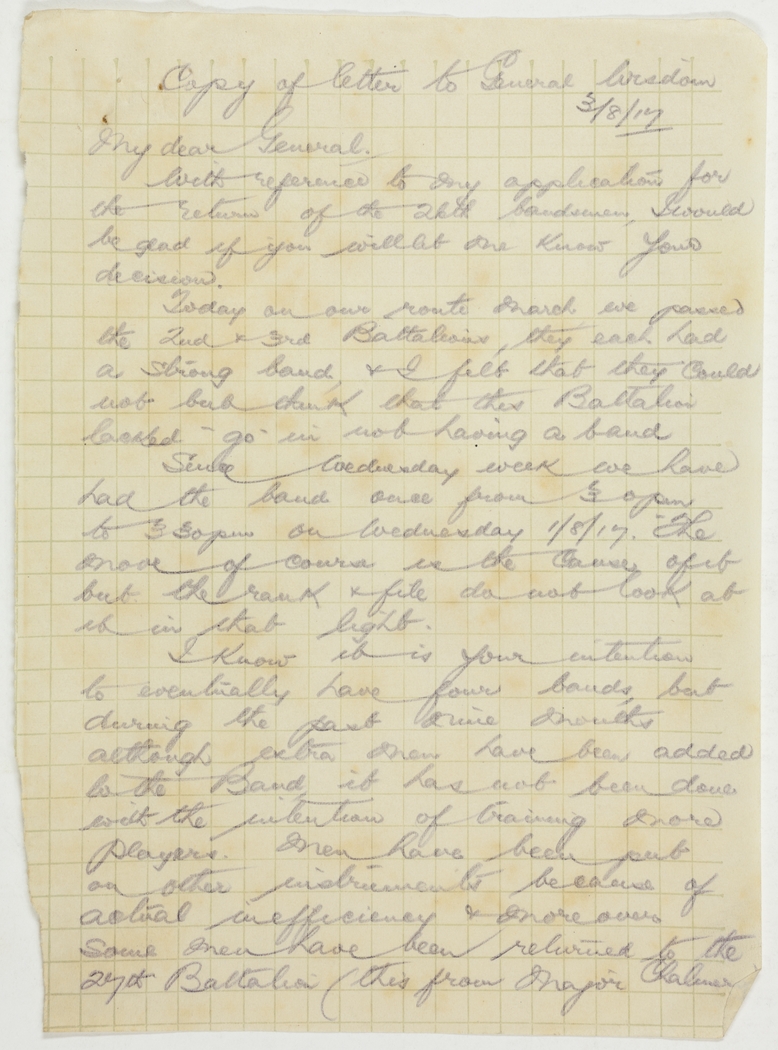 Copy of letter to General Wisdom
3/8/17
My dear General.
With reference to my application for
the return of the 26th bandsmen, I would
be glad if you will let me know your
decision.
Today on our route march we passed
the 2nd & 3rd Battalions, they each had
a strong band, & I felt that they could
not but think that this Battalion
lacked "go" in not having a band
Since Wednesday week we have
had the band once from 3 opm
to 3 30pm on Wednesday 1/8/17. The
move of course is the cause of it
but the rank & file do not look at
it in that light.
I know it is your intention
to eventually have four bands, but
during the past nine months
although extra men have been added
to the Band, it has not been done
with the intention of training more
players. Men have been put
on other instruments because of
actual inefficiency & moreover
some men have been returned to the
27th Battalion (this from Major Chalmers